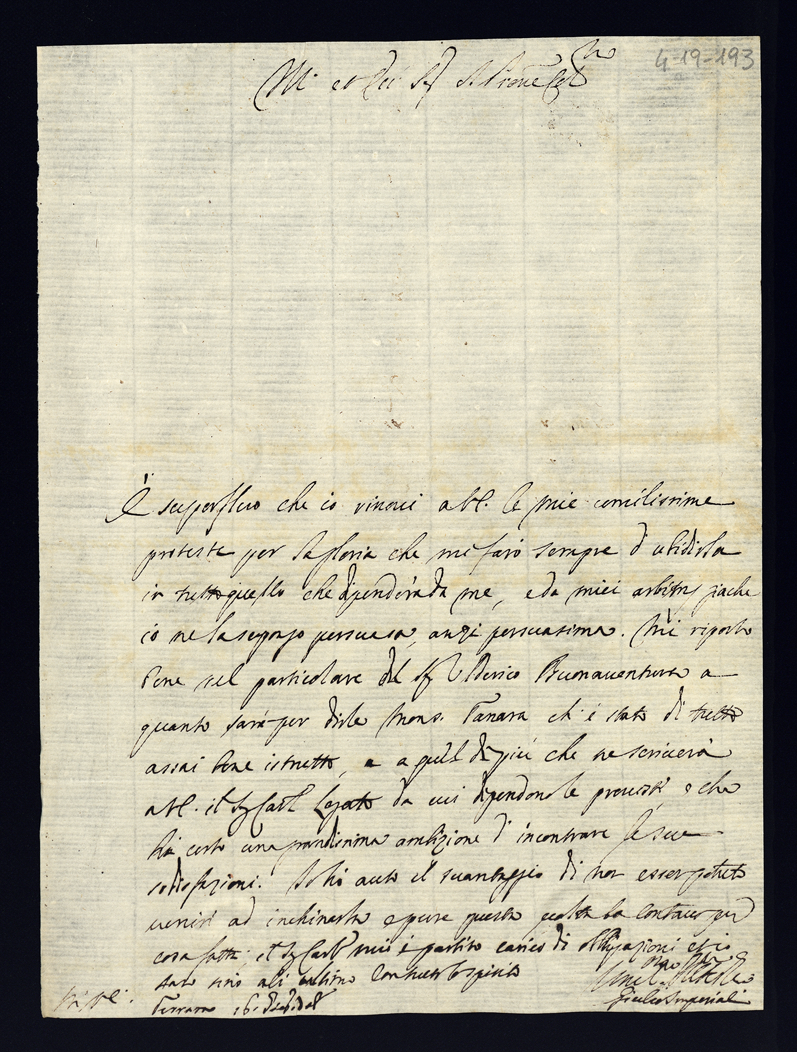 4-19-193
Ill et Sig Prone
È superfluo che io rinovi a VE. le mie umilissime
proteste per la gloria che mi farò sempre d'ubidirla
in tutto quello che dipenderà da me, e da miei arbitrij giache
io ne la suppongo persuasa, anzi persuasissima. Mi riporto
bene nel particolare del Sig Buonaventura a
quanto sarà per dirle Mons. Tanara ch'è stato di tutto
assai bene istrutto, e a quel di più che ne scriverà
a VE. il Sig Card Legato da cui dipendon le e che
ha certo una grandissima ambizione d'incontrare le sue
sodisfazioni. Io hò auto il svantaggio di non esser potuto
venir ad inchinarla e pure questa volta la contavo per
cosa fatta; il Sig Card mio è partito carico di obligazioni et io
sarò sino all' ultimo
Ferrara 16.
Giulio Imperiali